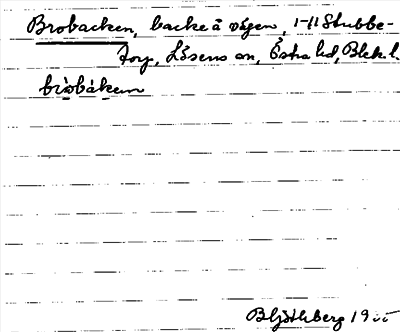 Brobacken, backe å vägen, 1-11 Stubbe-
torp, Lösens sn, Östra hd, Blek. l.
bròbákεn
B Ljöstberg 19